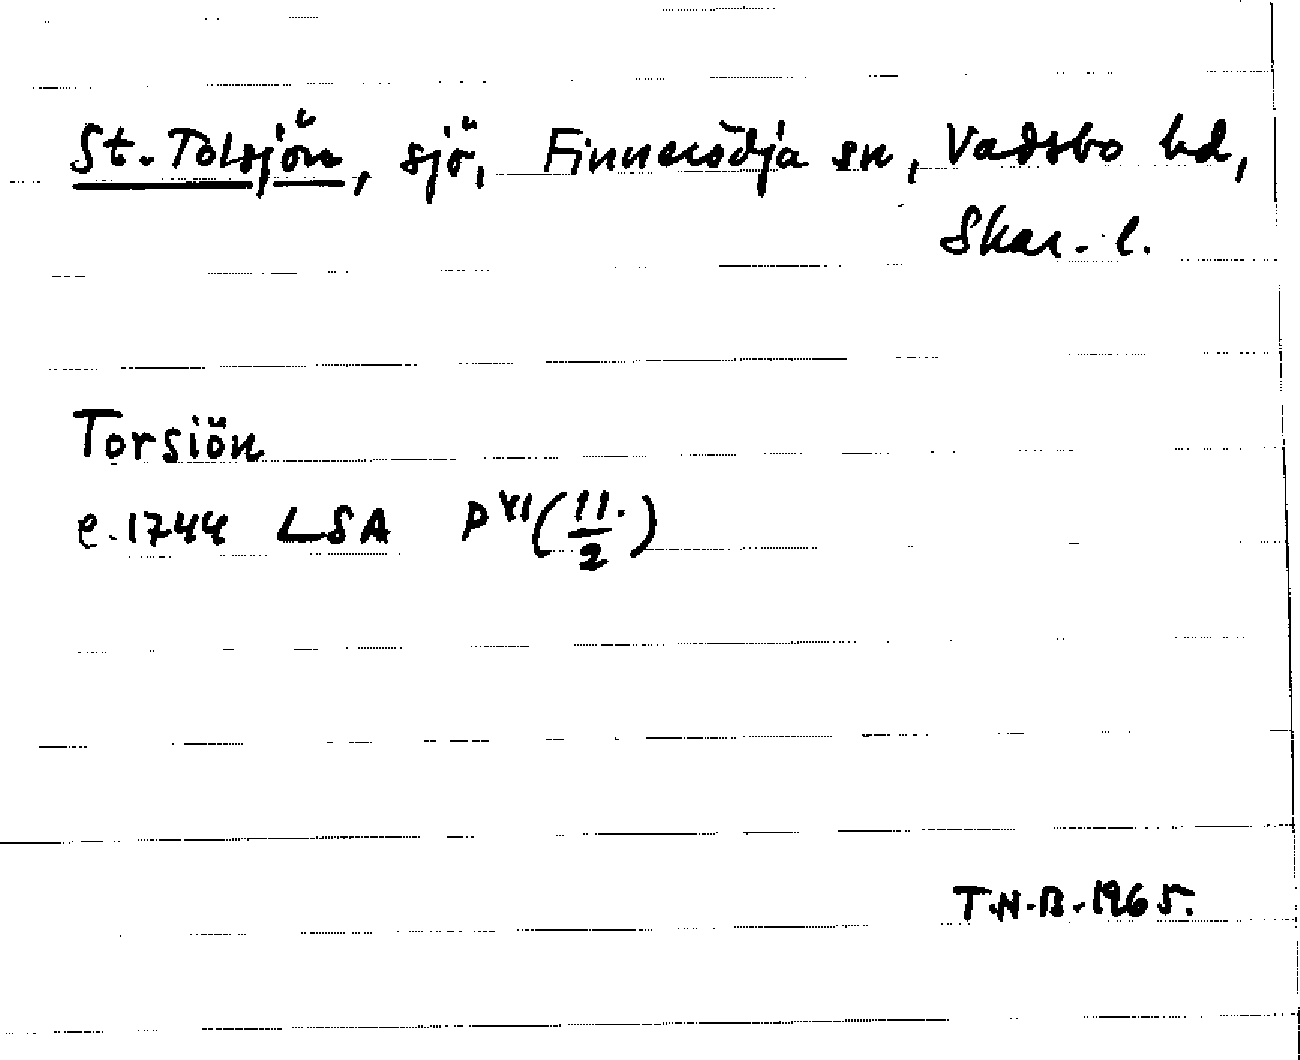 St. Tolsjön, sjö, Finnerödja sn, Vadsbo hd,
Skar. l.
Torsiön
e. 1744 LSA P VI (11./2)
T.N.B. 1965.